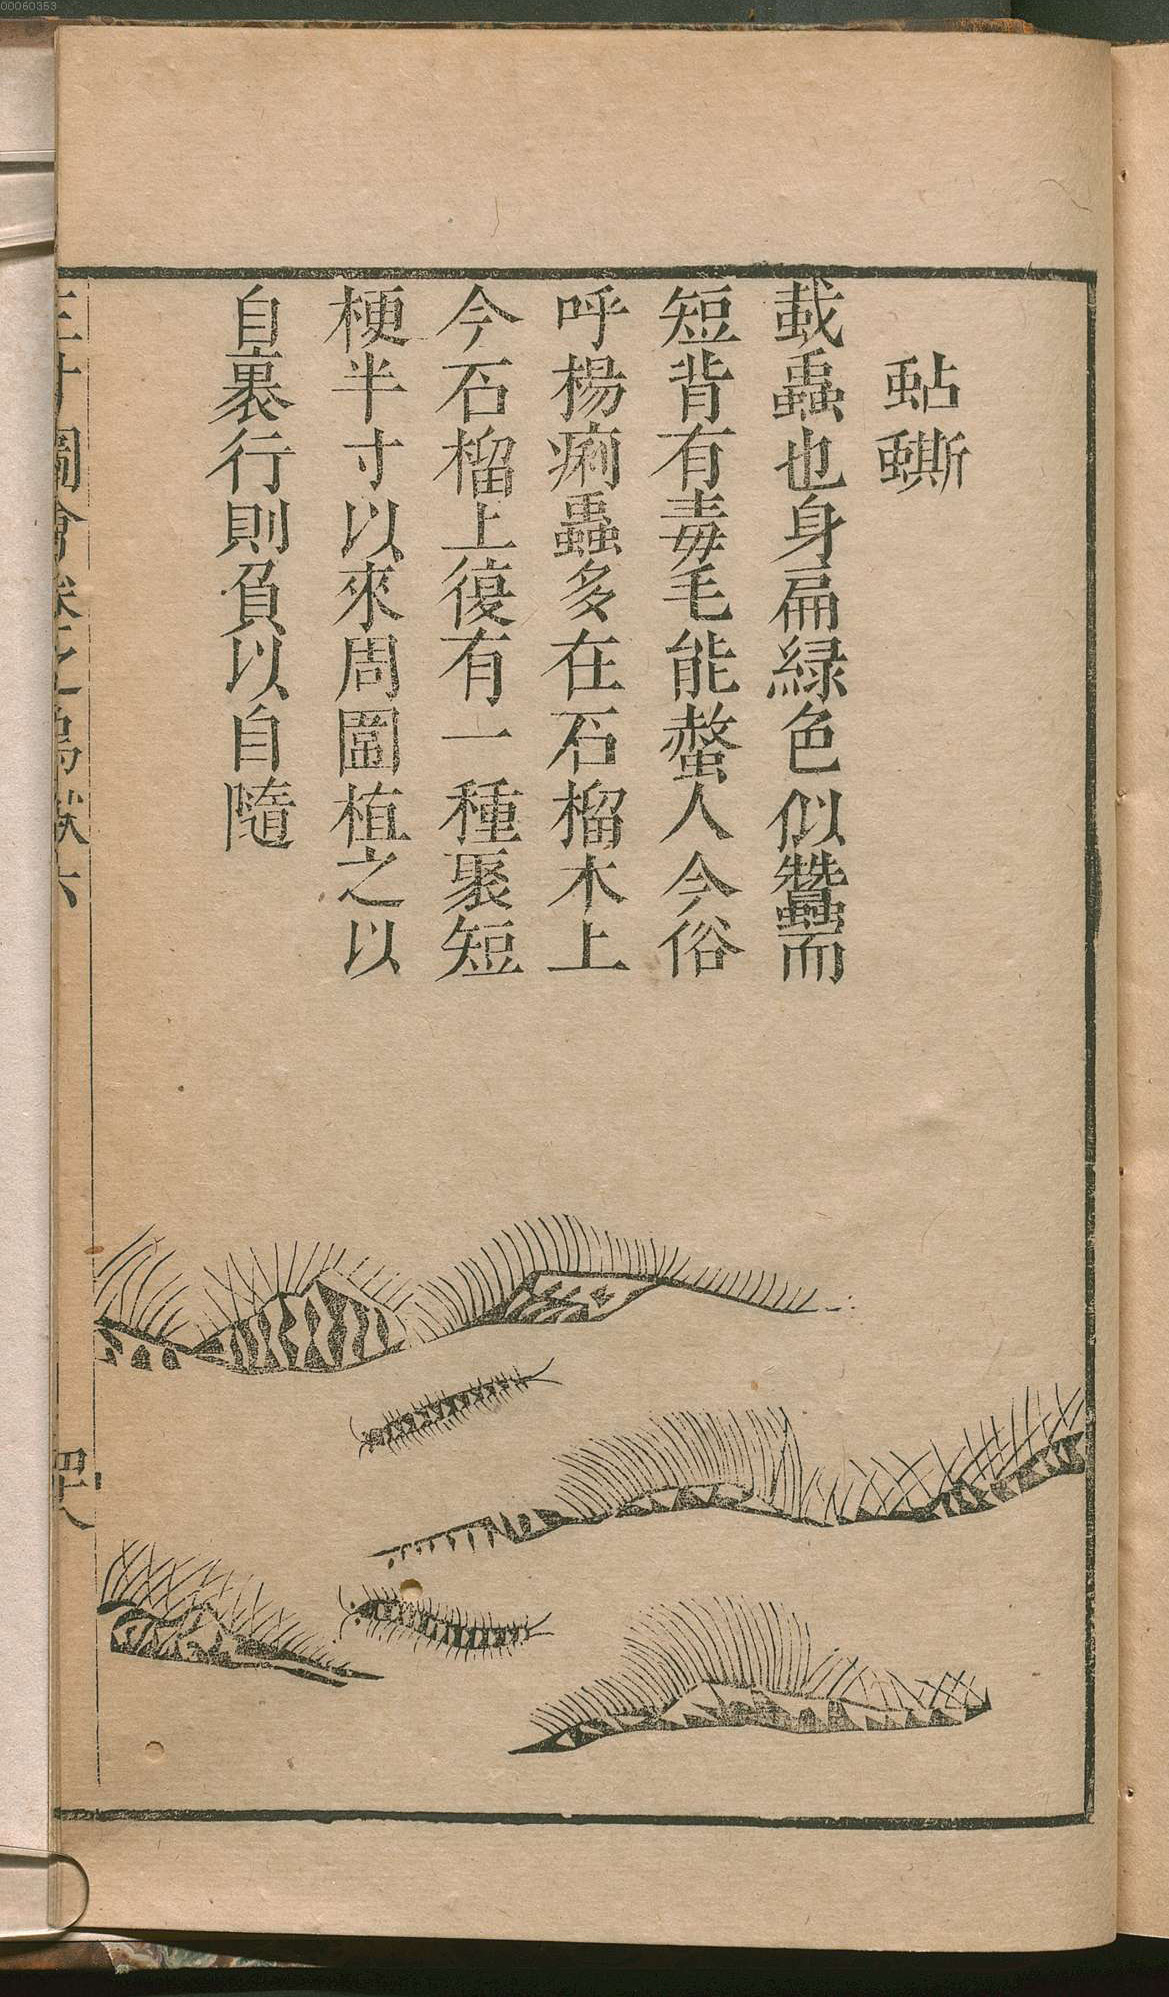 蛅蟴
蛓蟲也身扁綠色似蠶而
短背有毒毛能螫人今俗
呼楊痢蟲多在石榴木上
今石榴上復有一種聚短
梗半寸以來周圍植之以
自裹行則負以自隨
三才圖會卷之鳥獸六
四十八
00060353